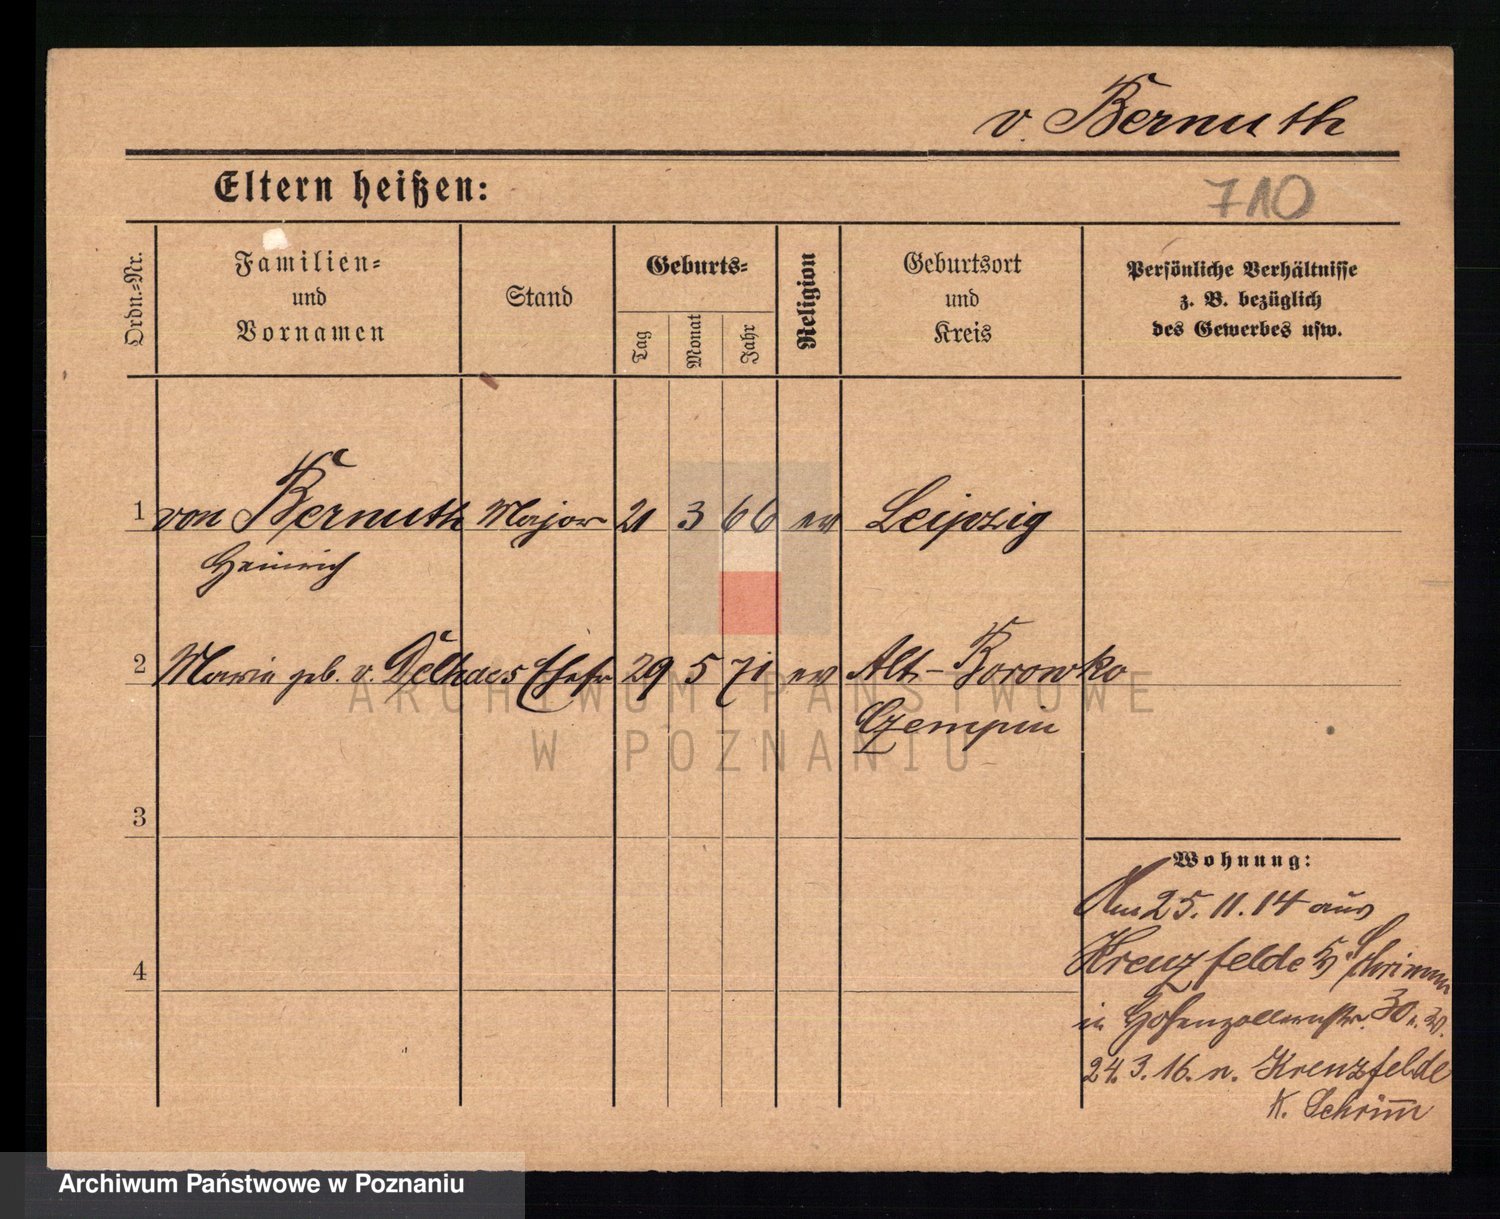 v. Bernuth
Eltern heißen:
710
Ordn.-Nr.
Familien-
und
Vornamen
Stand
Geburts-
Tag
Monat
Jahr
Religion
Geburtsort
und
Kreis
Persönliche Verhältnisse
z. B. bezüglich
des Gewerbes usw.
1 von Bernuth Major 21 3 66 ev Leipzig
Heinrich
2 Maria geb. v. Delhaes Ehefr 29 5 71 ev Alt-Borowko
Czempin
3
Wohnung:
Am 25.11.14 aus
Krenzfelde Schrimm
4
in Hohenzollernstr. 30
24.3.16. n. Krenzfelde
K. Schrim̅
ARCHIWUM PAŃSTWOWE
W POZNANIU
Archiwum Państwowe w Poznaniu